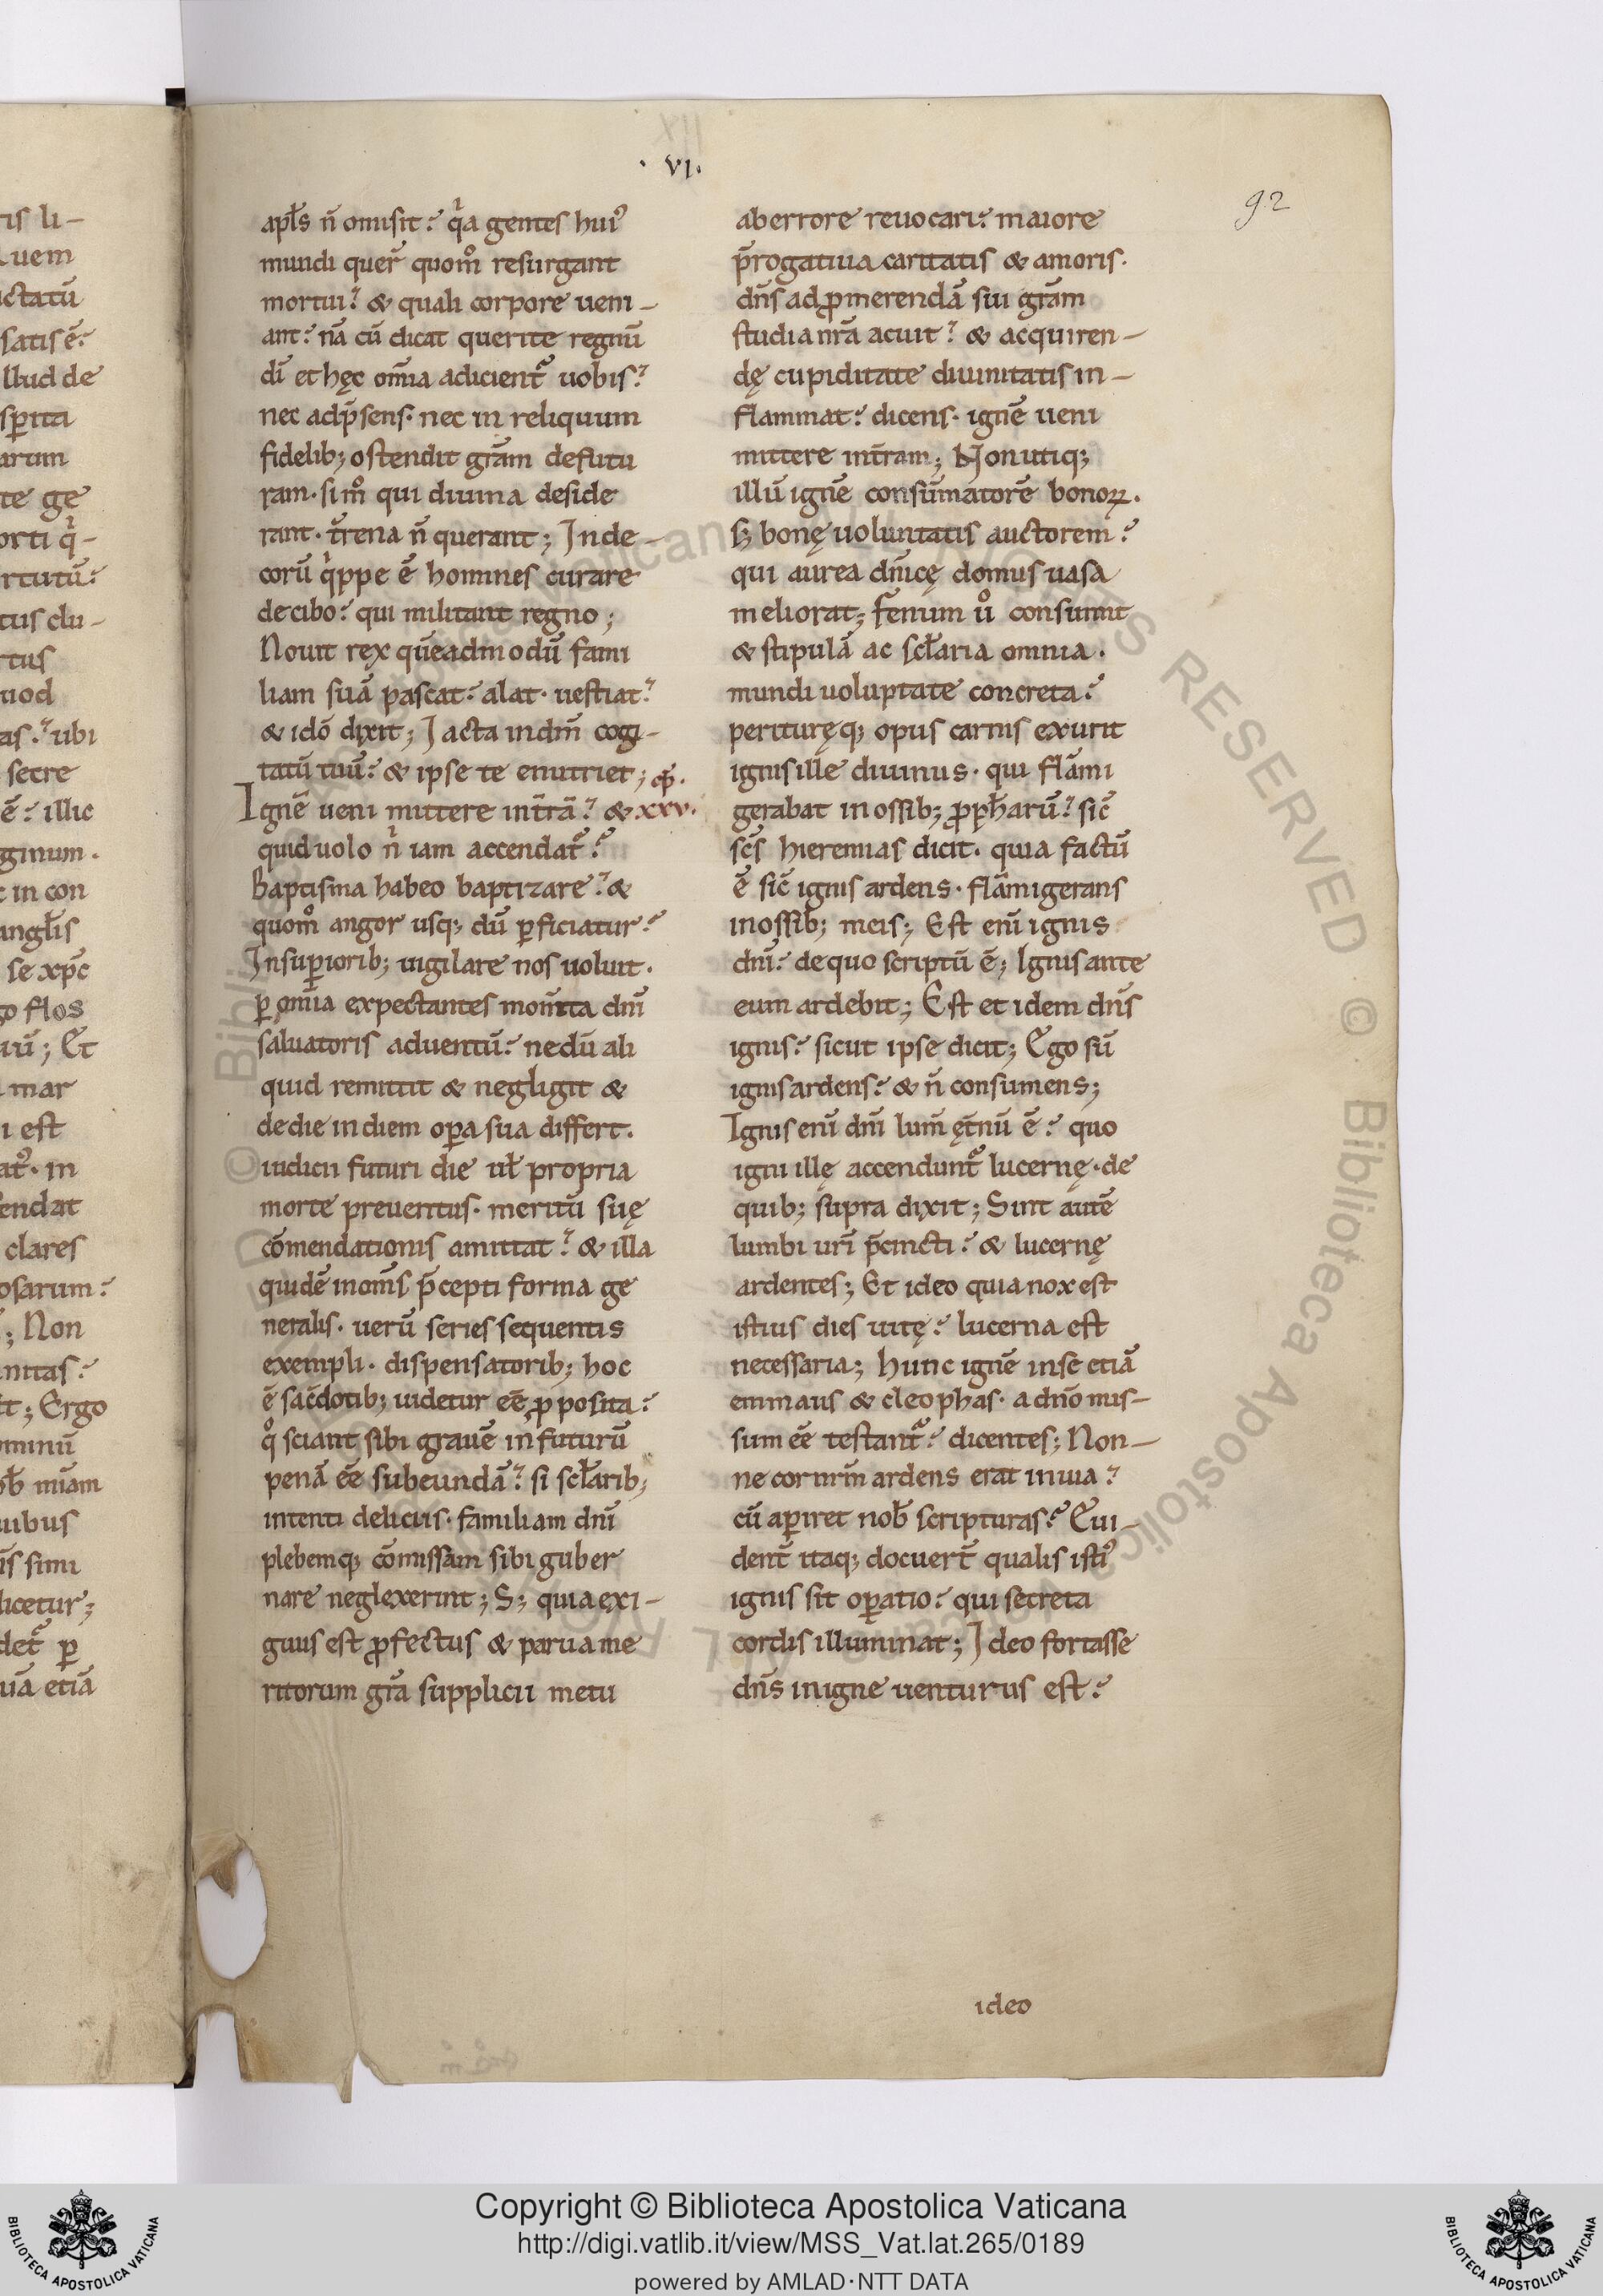 · VI ·
92
apl̃s ñ omisit? qͥa gentes hui᷒
mundi quer̃ quom̊ resurgant
mortui? & quali corpore ueni-
ant? nā cū dicat querite regnū
dī et hęc om̄ia adicient᷑ uobis?
nec adp̄sens· nec in reliquum
fidelib; ostendit grām defutu
ram· sim̊ qui diuina deside
rant· t̄rena ñ querant; Inde-
corū qͥppe ē homines curare
de cibo? qui militant regno;
Nouit rex quēadmodū fami
liam suā pascat? alat· uestiat?
& idō dixit; Iacta indm̄ cogi-
tatū tuū? & ipse te enutriet; cp̄.
Ignē ueni mittere int̄rā? & xxv.
quid uolo nͥ iam accendat᷑?
Baptisma habeo baptizare? &
quom̊ angor usq; dū ꝑficiatur?
Insuꝑiorib; uigilare nos uoluit·
ꝑ om̄ia expectantes momīta dnī
saluatoris aduentū? nedū ali
quid remittit & negligit &
de die indiem oꝑa sua differt·
iudicii futuri die ul̃ propria
morte preuentus· meritū suę
cōmendationis amittat? & illa
quidē inom̄s p̄cepti forma ge
neralis· uerū series sequentis
exempli· dispensatorib; hoc
ē sac̄dotib; uidetur eē ꝓposita?
q̊ sciant sibi grauē infuturū
penā eē subeundā? si scl̃arib;
intenti deliciis· familiam dnī
plebemq; cōmissam sibi guber
nare neglexerint; S; quia exi-
guus est ꝓfectus & parua me
ritorum grā supplicii metu
ab errore reuocari? maiore
p̄rogatiua caritatis & amoris·
dn̄s adꝓmerendā sui grām
studia nrā acuit? & acquiren-
dę cupiditate diuinitatis in-
flammat? dicens· ignē ueni
mittere int̄ram; Non utiq;
illū ignē consūmatorē bonoꝝ·
s; bonę uoluntatis auctorem?
qui aurea dn̄icę domus uasa
meliorat; fenum ů consumit
& stipulā ac scl̃aria omnia·
mundi uoluptate concreta?
perituręq; opus carnis exurit
ignis ille diuinus· qui flāmi
gerabat in ossib; ꝓph̃arū? sic̄
sc̄s hieremias dicit· quia factū
ē sic̄ ignis ardens· flāmigerans
inossib; meis; Est enī ignis
dnī? de quo scriptū ē; Ignis ante
eum ardebit; Est et idem dn̄s
ignis? sicut ipse dicit; Ego sū
ignis ardens? & ñ consumens;
Ignis enī dnī lum̄ ęt̄nū ē? quo
igni illę accendunt᷑ lucernę· de
quib; supra dixit; Sint autē
lumbi urī p̄cincti? & lucernę
ardentes; Et ideo quia nox est
istius dies uitę? lucerna est
necessaria; hunc ignē inse etiā
emmaus & cleophas· a dnō mis-
sum eē testant᷑? dicentes; Non-
ne cor nrm̄ ardens erat inuia?
cū aꝑiret nob̃ scripturas? Eui-
dent̄ itaq; docuer̃t qualis isti᷒
ignis sit oꝑatio? qui secreta
cordis illuminat; Ideo fortasse
dn̄s inigne uenturus est?
ideo
Copyright © Biblioteca Apostolica Vaticana
http://digi.vatlib.it/view/MSS_Vat.lat.265/0189
powered by AMLAD·NTT DATA